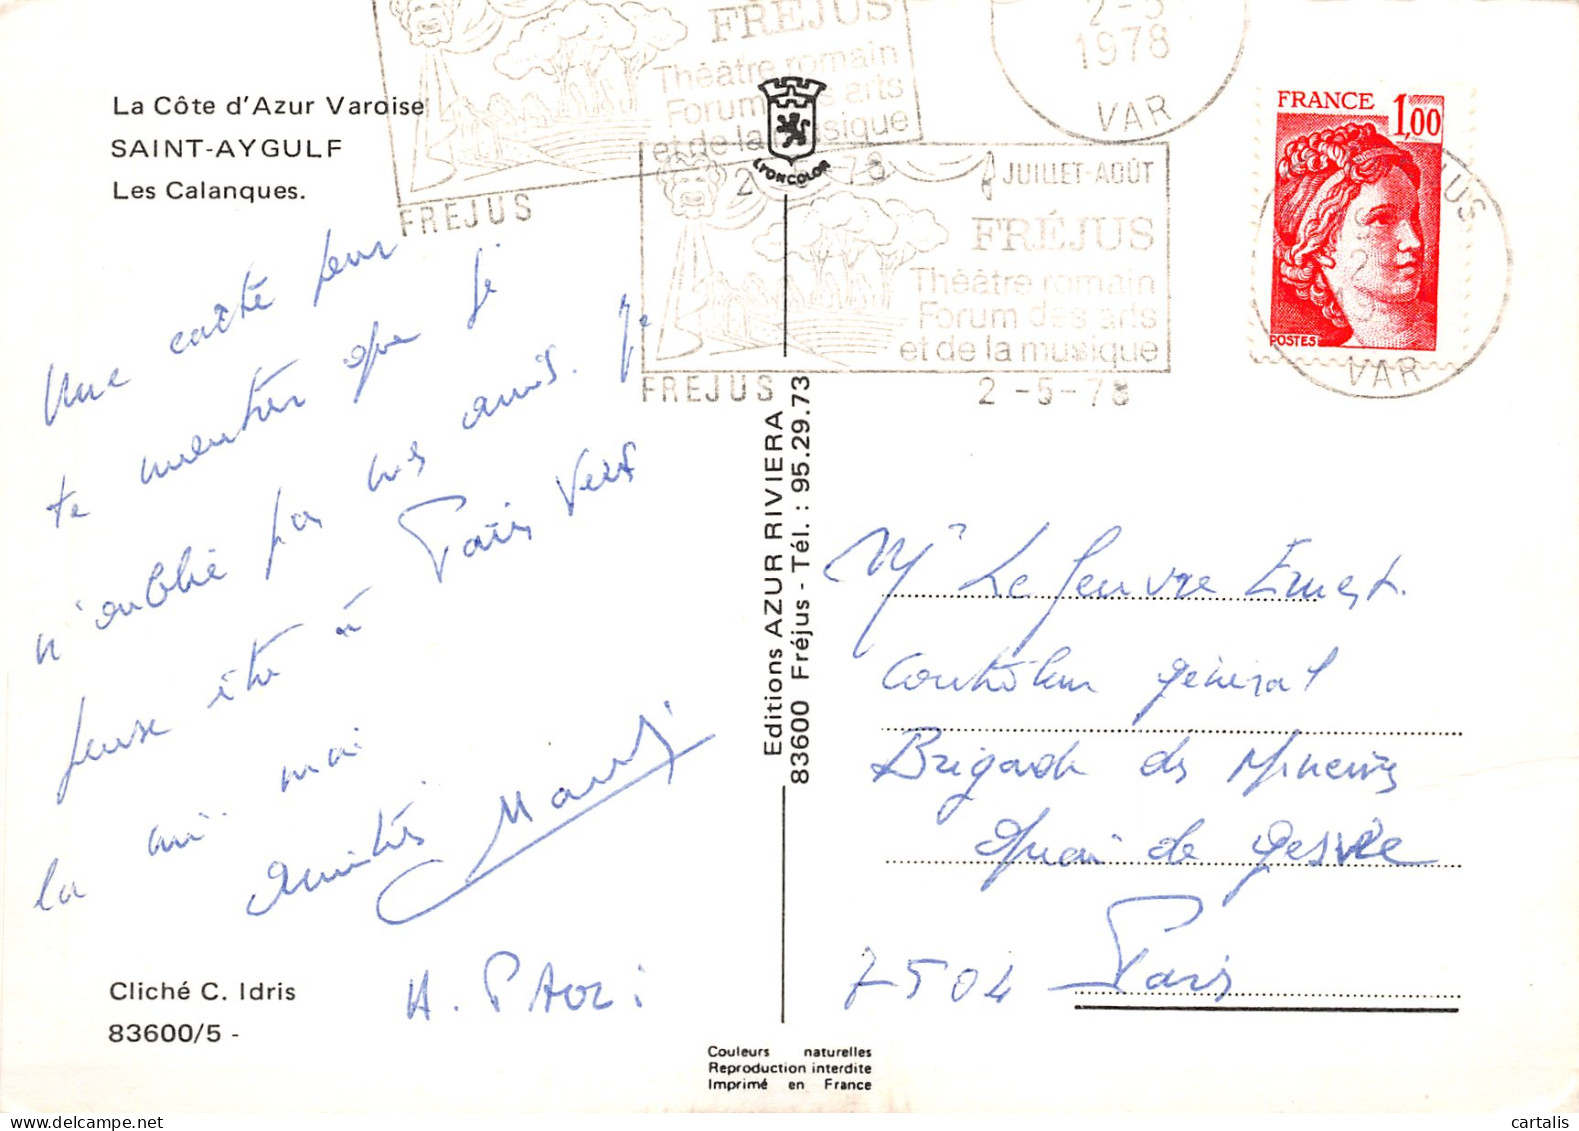 La Côte d'Azur Varoise
SAINT-AYGULF
Les Calanques.
FRÉJUS
Théâtre romain
Forum des arts
et de la musique
2-5-78
FREJUS
2-5
1978
VAR
LYONCOLOR
JUILLET-AOÛT
FRÉJUS
Théâtre romain
Forum des arts
et de la musique
FREJUS
2-5-78
FRANCE 1,00
POSTES
VAR
Une carte pour
te montrer que je
n'oublie pas nos amis. Je
pense être à Paris vers
la mi mai
Amitiés
H. PAOLI
Editions AZUR RIVIERA
83600 Fréjus - Tél. : 95.29.73
Mr Lefeuvre Ernest.
Contrôleur général
Brigade des Mineurs
Quai de Gesvre
7504 Paris
Cliché C. Idris
83600/5 -
Couleurs naturelles
Reproduction interdite
Imprimé en France
cartalis